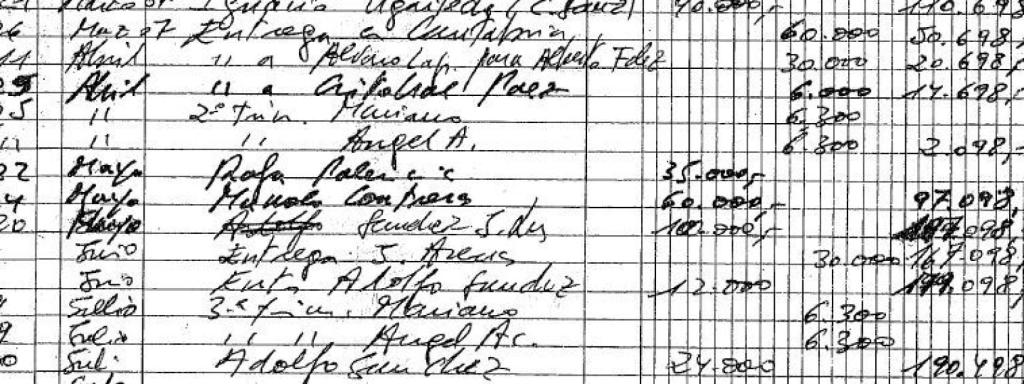 40.000,- 110.698
26 Marzo 87 Entrega a Cantabria 60.000 50.698,-
11 Abril " a Alvaro Lap. para Alberto Fdez 30.000 20.698,-
25 Abril " a Cristobal Paez 6.000 14.698,-
25 " 2º trim. Mariano 6.300
" " " Angel A. 6.300 2.098,-
22 Mayo Rafa Palencia 35.000,-
Mayo Manolo Contreras 60.000,- 97.098,
20 Mayo Adolfo Sanchez 100.000,- 197.098,
Junio Entrega J. Arenas 30.000 167.098,
Junio Entr. Adolfo Sanchez 12.000 179.098,
Julio 3º trim. Mariano 6.300
9 Julio " " Angel Ac. 6.300
Jul. Adolfo Sanchez 24.000 190.498